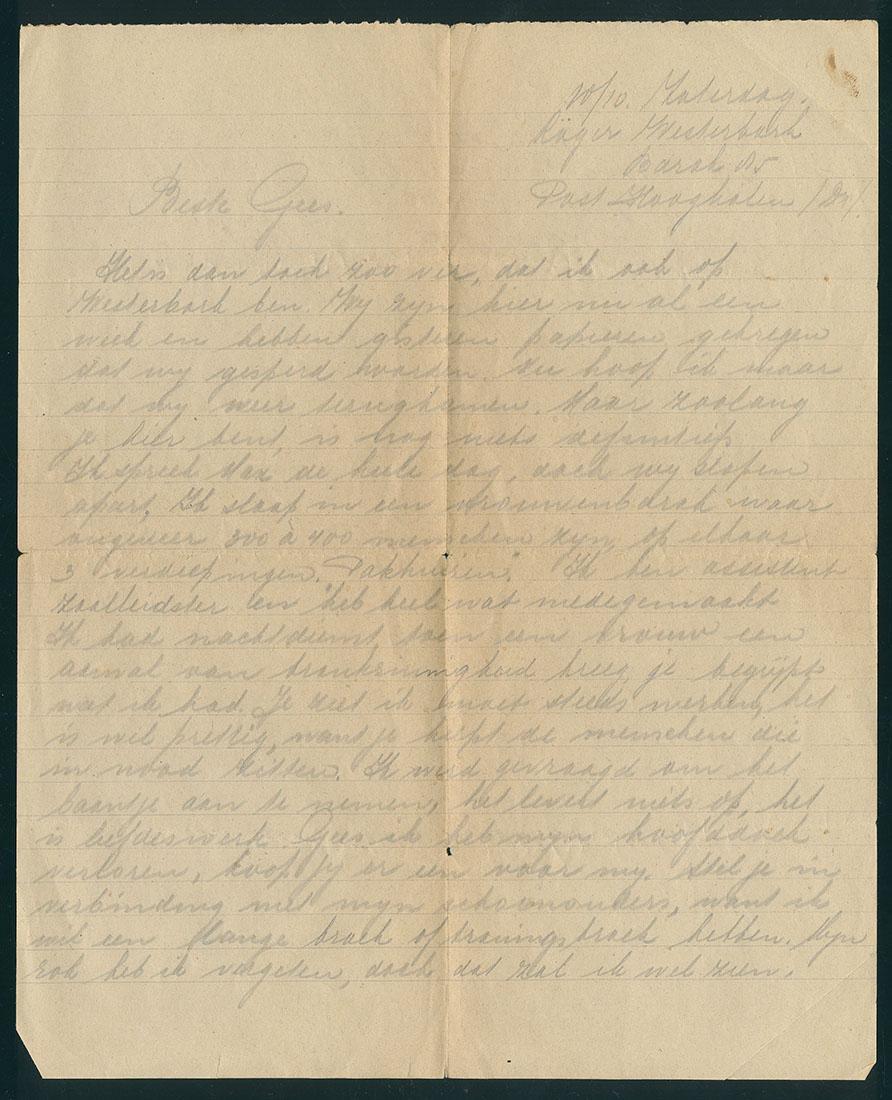 10/10. Zaterdag.
Lager Westerbork
Barak 85
Post Hooghalen (Dr).
Beste Gees.
Het is dan toch zoo ver, dat ik ook op
Westerbork ben. Wy zyn hier nu al een
week en hebben gisteren papieren gekregen
dat wy gesperd worden. Nu hoop ik maar
dat wy weer terugkomen. Maar zoolang
je hier bent, is nog niets definitief.
Ik spreek Max de heele dag, doch wy slapen
apart. Ik slaap in een vrouwenbarak waar
ongeveer 300 à 400 menschen zyn, op elkaar
3 verdiepingen. "Pakhuizen." Ik ben assistent
zaalleidster en heb heel wat medegemaakt
Ik had nachtdienst toen een vrouw een
aanval van krankzinnigheid kreeg, je begrypt
wat ik had. Je ziet ik moet steeds werken, het
is wel prettig, want je helpt de menschen die
in nood zitten. Ik werd gevraagd om het
baantje aan te nemen, het levert niets op, het
is liefdeswerk. Gees ik heb myn hoofddoek
verloren, koop jy er een voor my. Stel je in
verbinding met myn schoonouders, want ik
wil een lange broek of trainingsbroek hebben. Myn
rok heb ik vergeten, doch dat zal ik wel zien.